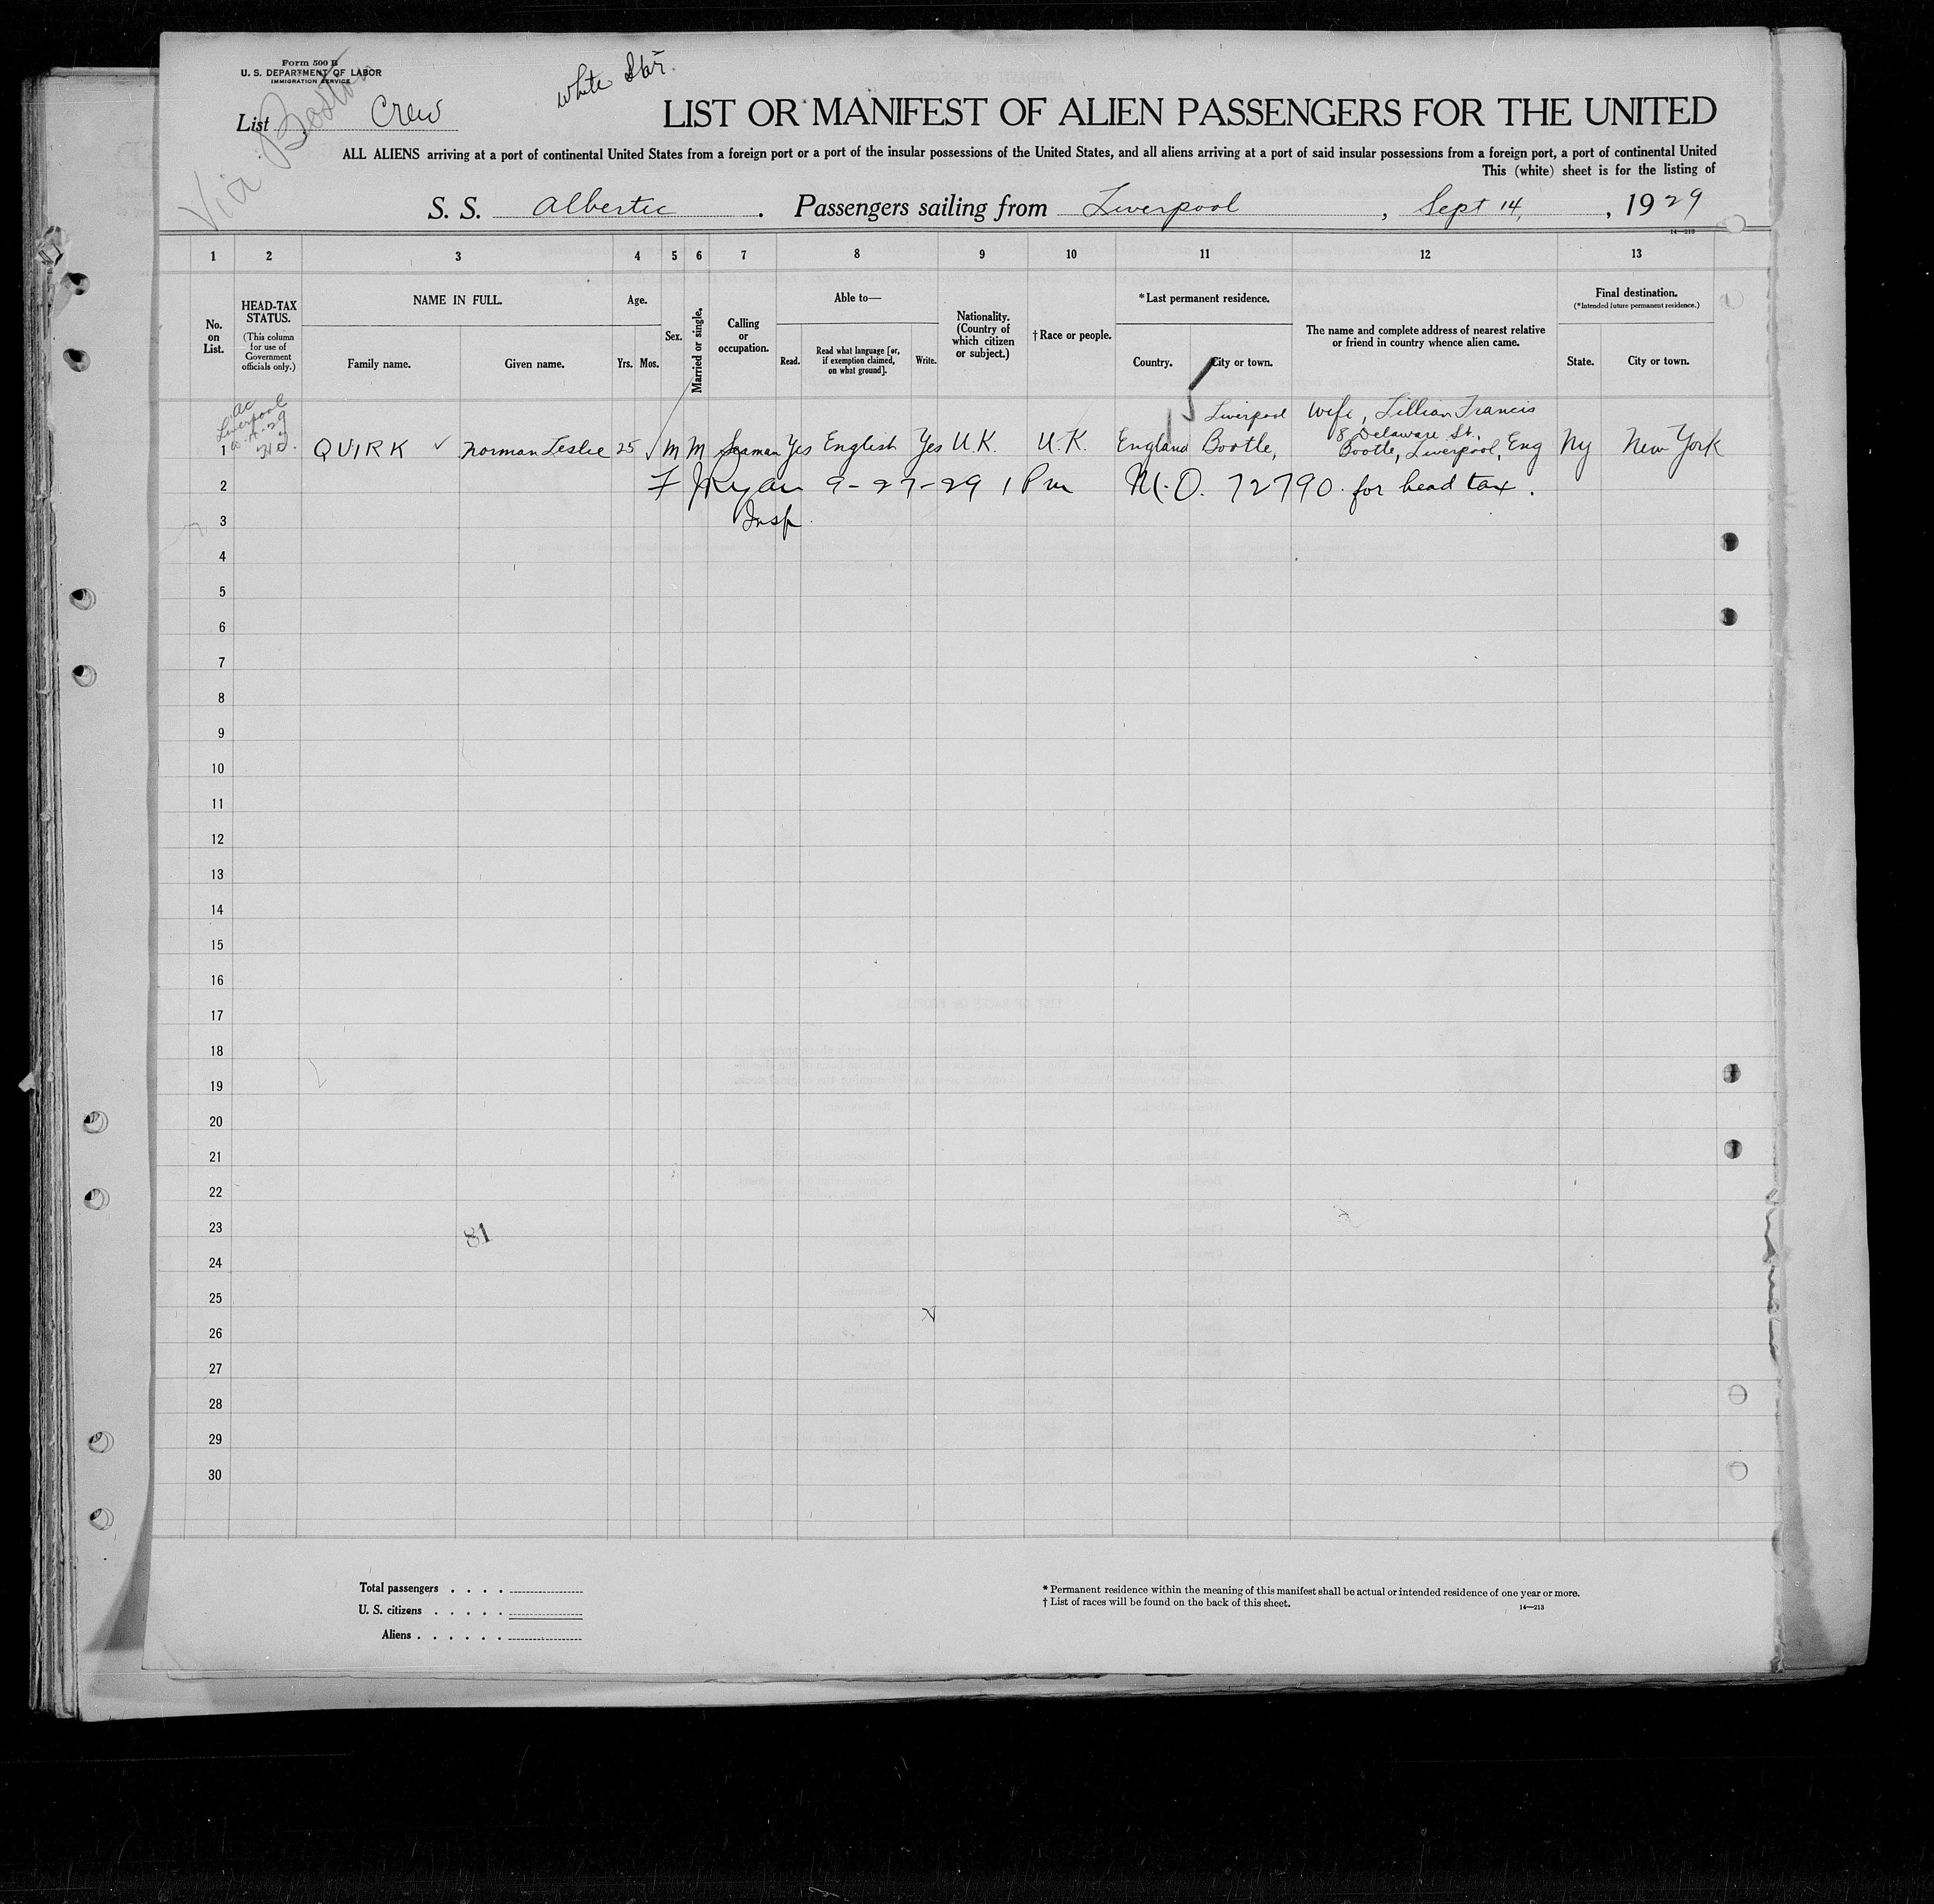 Form 500 B
U. S. DEPARTMENT OF LABOR
IMMIGRATION SERVICE
Via Boston
List Crew
White Star.
LIST OR MANIFEST OF ALIEN PASSENGERS FOR THE UNITED
ALL ALIENS arriving at a port of continental United States from a foreign port or a port of the insular possessions of the United States, and all aliens arriving at a port of said insular possessions from a foreign port, a port of continental United
This (white) sheet is for the listing of
S. S. Albertic . Passengers sailing from Liverpool , Sept 14, , 1929
14—213
1 2 3 4 5 6 7 8 9 10 11 12 13
No. on List.
HEAD-TAX STATUS.
(This column for use of Government officials only.)
NAME IN FULL.
Family name. Given name.
Age.
Yrs. Mos.
Sex.
Married or single.
Calling or occupation.
Able to—
Read. Read what language [or, if exemption claimed, on what ground]. Write.
Nationality. (Country of which citizen or subject.)
† Race or people.
*Last permanent residence.
Country. City or town.
The name and complete address of nearest relative or friend in country whence alien came.
Final destination.
(*Intended future permanent residence.)
State. City or town.
Liverpool Wife, Lillian Francis
8 Delaware St.
1 QUIRK ✓ Norman Leslie 25 ✓ M M Seaman Yes English Yes U.K. U.K. England Bootle, Bootle, Liverpool, Eng Ny New York
2 F J Ryan 9-27-29 1 Pm M.O. 72790 for head tax.
3 Insp.
4
5
6
7
8
9
10
11
12
13
14
15
16
17
18
19
20
21
22
23 81
24
25
26
27
28
29
30
Total passengers . . . .
U. S. citizens . . . . .
Aliens . . . . . .
* Permanent residence within the meaning of this manifest shall be actual or intended residence of one year or more.
† List of races will be found on the back of this sheet.
14—213